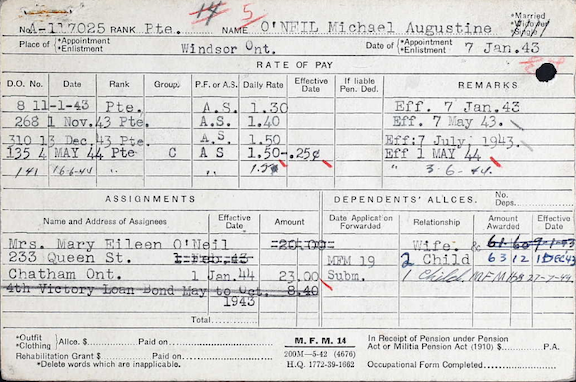 14 5
No. A-117025 RANK Pte. NAME O'NEIL Michael Augustine *Married *Widower *Single
Place of *Appointment *Enlistment Windsor Ont. Date of *Appointment *Enlistment 7 Jan.43
RATE OF PAY
D.O. No. Date Rank Group P.F. or A.S. Daily Rate Effective Date If liable Pen. Ded. REMARKS
8 11-1-43 Pte. A.S. 1.30 Eff. 7 Jan.43
268 1 Nov.43 Pte. A.S. 1.40 Eff. 7 May 43.
310 13 Dec.43 Pte. A.S 1.50 Eff:7 July,1943.
135 4 MAY 44 Pte C A S 1.50-.25¢ Eff 1 MAY 44
141 16-6-44 " " " 3-6-44.
ASSIGNMENTS DEPENDENTS' ALLCES. No. Deps.
Name and Address of Assignees Effective Date Amount Date Application Forwarded Relationship Amount Awarded Effective Date
Mrs. Mary Eileen O'Neil 20.00 Wife &
233 Queen St. 1 Feb.43 MFM 19 2 Child 63 12 1 DEC 43
Chatham Ont. 1 Jan.44 23.00 Subm. 1 Child.
4th Victory Loan Bond May to Oct. 8.40
1943
Total
*Outfit *Clothing Alice. $ Paid on M.F.M. 14 In Receipt of Pension under Pension
Rehabilitation Grant $ Paid on 200M—5-42 (4676) Act or Militia Pension Act (1910) $ P.A.
*Delete words which are inapplicable. H.Q. 1772-39-1662 Occupational Form Completed